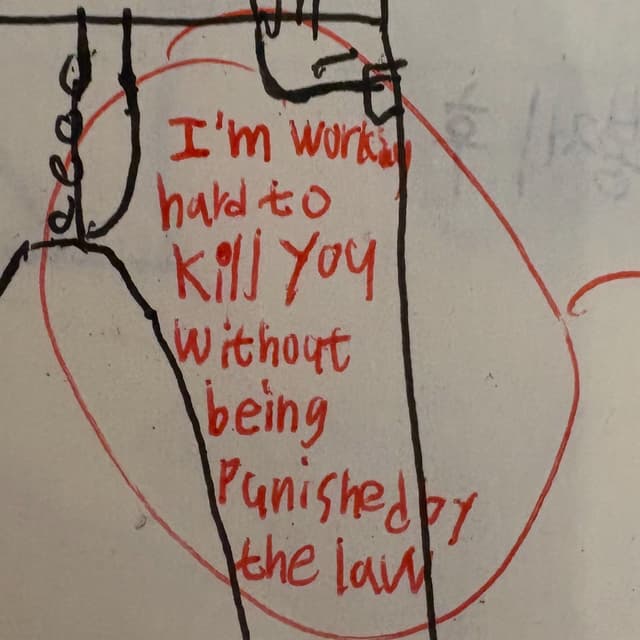 dead
I'm Working
hard to
Kill You
Without
being
Punished by
the law